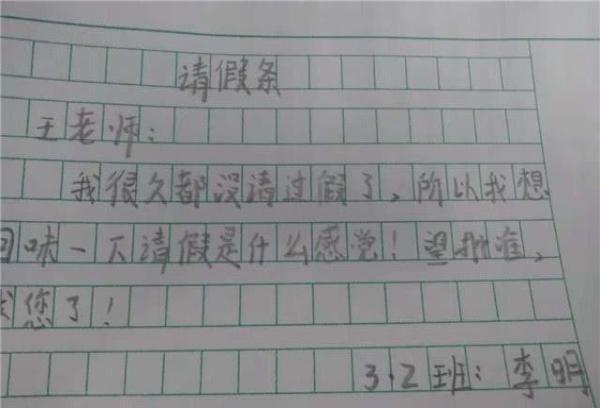 请假条
王老师:
我很久都没请过假了,所以我想
回味一下请假是什么感觉!望批准,
求您了!
3.2班:李明